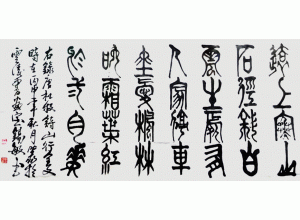 遠上寒山
石徑斜白
雲生處有
人家停車
坐愛楓林
晚霜葉紅
於二月花
右錄唐杜牧詩山行
時在丙申年秋月